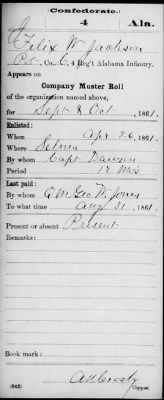 Confederate.
4 Ala.
Felix W Jackson
Pvt, Co. C, 4 Reg't Alabama Infantry.
Appears on
Company Muster Roll
of the organization named above,
for Sept & Oct, 1861.
Enlisted:
When Apr 26, 1861.
Where Selma
By whom Capt Dawson
Period 12 Mos
Last paid:
By whom QM Geo W. Jones
To what time Aug 31, 1861.
Present or absent Present
Remarks:
Book mark:
(642) Copyist.